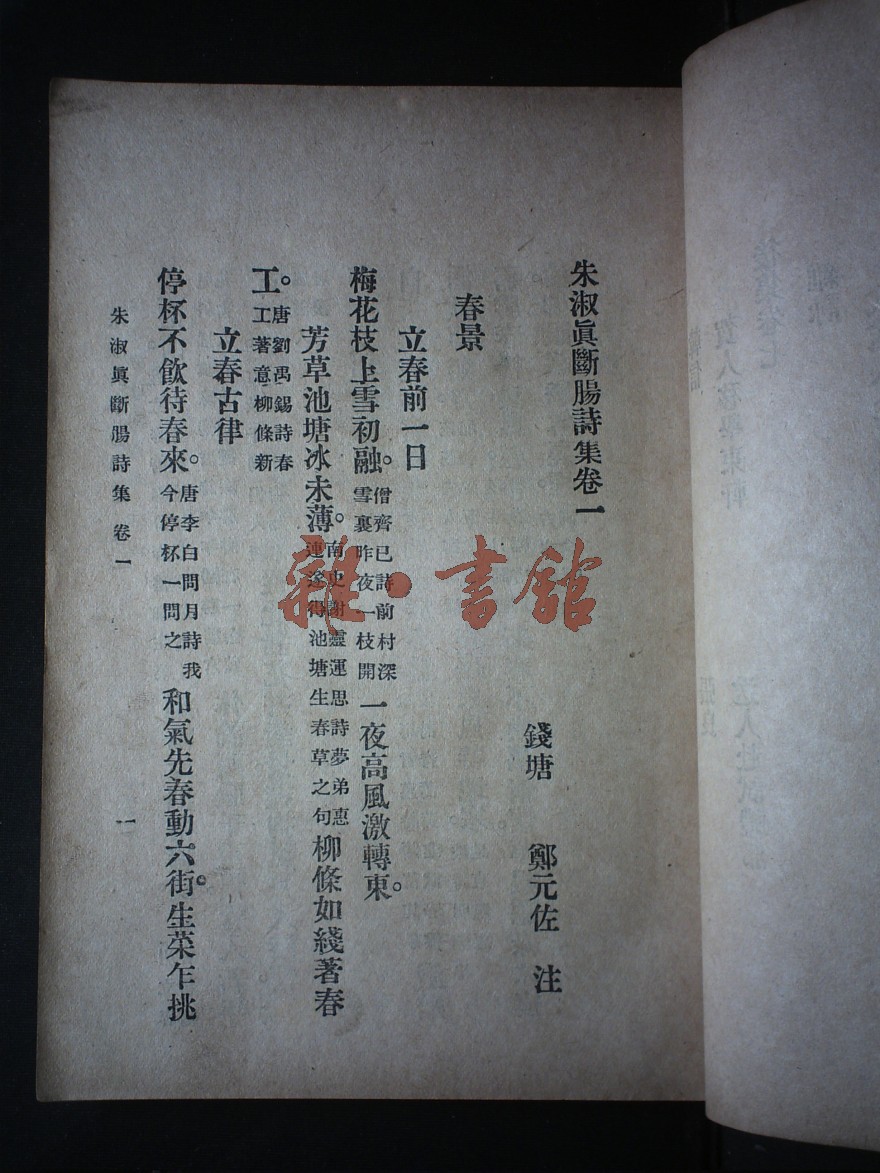 朱淑眞斷腸詩集卷一
錢塘 鄭元佐 注
春景
立春前一日
梅花枝上雪初融。僧齊已詩前村深雪裏昨夜一枝開一夜高風激轉東。
芳草池塘冰未薄。南史謝靈運思詩夢弟惠連遂得池塘生春草之句柳條如綫著春
工。唐劉禹錫詩春工著意柳條新
立春古律
停杯不飮待春來。唐李白問月詩我今停杯一問之和氣先春動六街。生菜乍挑
朱淑眞斷腸詩集 卷一
一
雜·書館